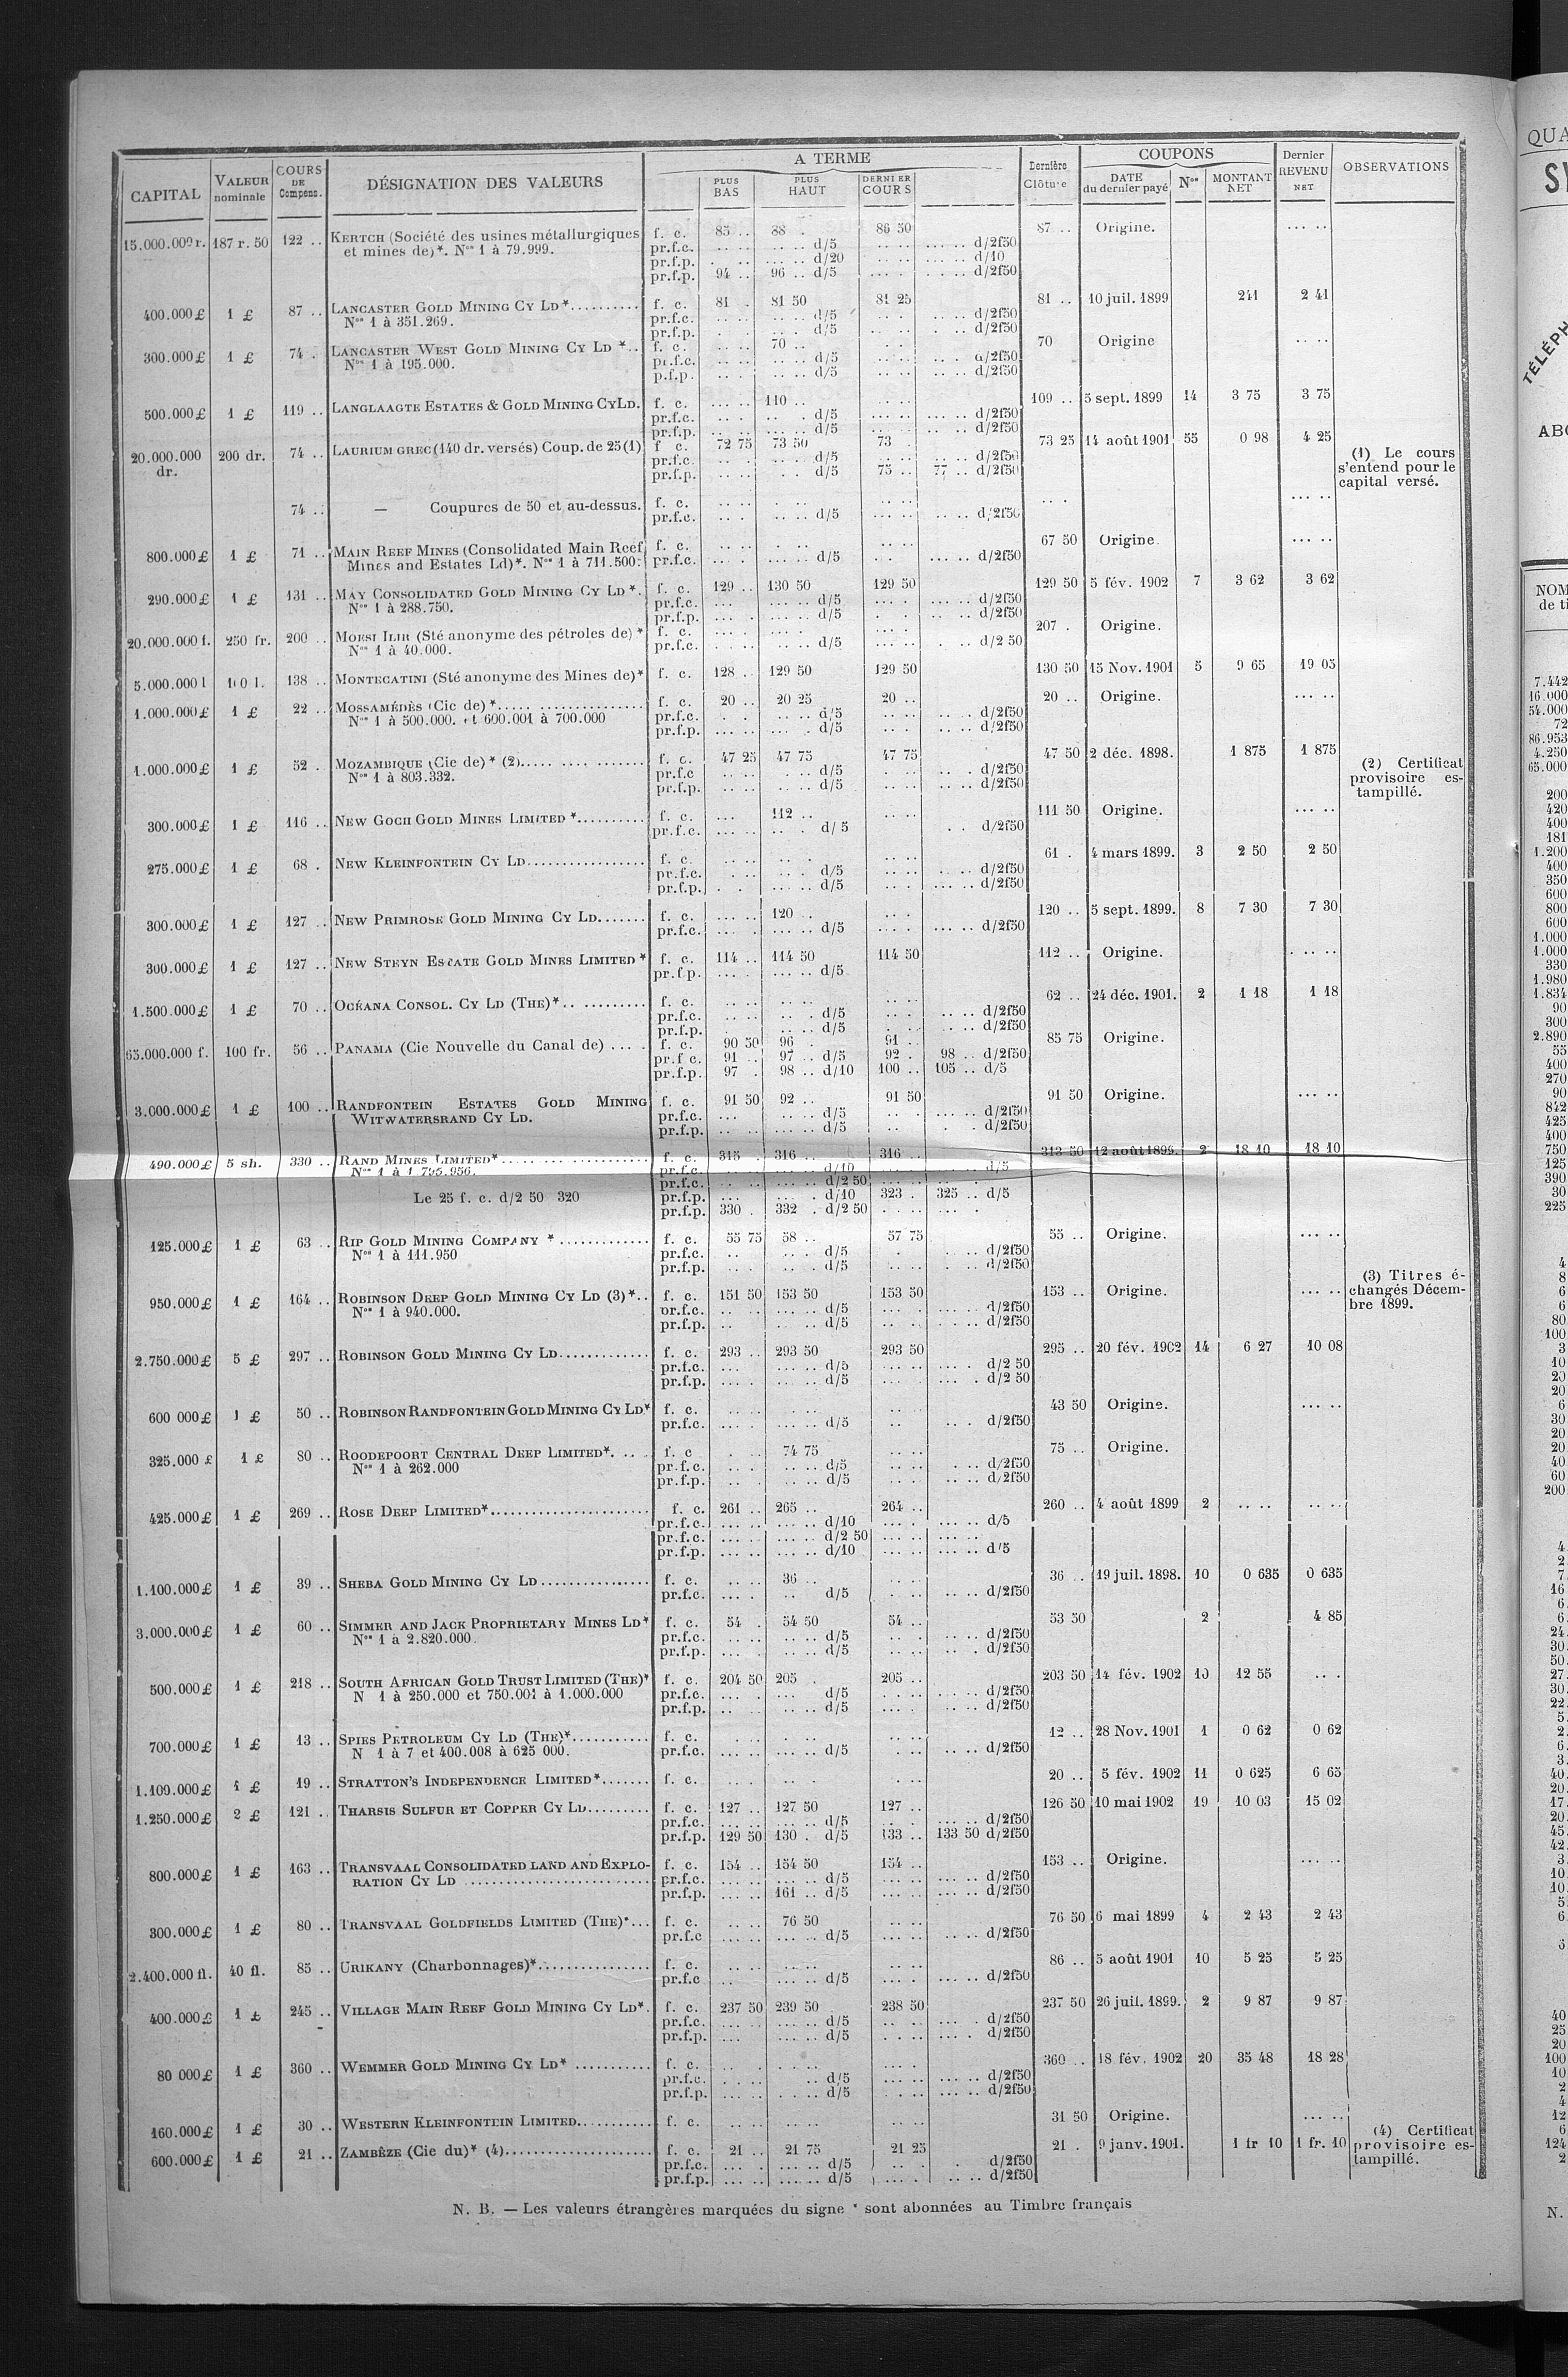 A TERME
COUPONS
CAPITAL VALEUR nominale COURS DE Compens. DÉSIGNATION DES VALEURS PLUS BAS PLUS HAUT DERNIER COURS Dernière Clôture DATE du dernier payé Nos MONTANT NET Dernier REVENU NET OBSERVATIONS
15.000.000 r. 187 r. 50 122 .. KERTCH (Société des usines métallurgiques f. c. 85 .. 88 . 86 50 87 .. Origine. ... ..
et mines de)*. Nos 1 à 79.999. pr.f.c. d/5 d/2f50
pr.f.p. d/20 d/10
pr.f.p. 94 .. 96 .. d/5 d/2f50
400.000 £ 1 £ 87 .. LANCASTER GOLD MINING CY LD*.......... f. c. 81 . 81 50 81 25 81 .. 10 juil. 1899 241 2 41
Nos 1 à 351.269. pr.f.c. d/5 d/2f50
pr.f.p. d/5 d/2f50
300.000 £ 1 £ 74 . LANCASTER WEST GOLD MINING CY LD *.. f. c. 70 .. 70 Origine
Nos 1 à 195.000. pr.f.c. d/5 d/2f50
p.f.p. d/5 d/2f50
500.000 £ 1 £ 119 .. LANGLAAGTE ESTATES & GOLD MINING CY LD. f. c. 110 .. 109 .. 5 sept. 1899 14 3 75 3 75
pr.f.c. d/5 d/2f50
pr.f.p. d/5 d/2f50
20.000.000 dr. 200 dr. 74 .. LAURIUM GREC (140 dr. versés) Coup. de 25 (1) f c. 72 75 73 50 73 . 73 25 14 août 1901 55 0 98 4 25
pr.f.c. d/5 d/2f50
pr.f.p. d/5 75 .. 77 .. d/2f50
(1) Le cours
s'entend pour le
capital versé.
74 .. — Coupures de 50 et au-dessus. f. c.
pr.f.c. d/5 d/2f50
800.000 £ 1 £ 71 .. MAIN REEF MINES (Consolidated Main Reef f. c. 67 50 Origine.
Mines and Estates Ld)*. Nos 1 à 711.500. pr.f.c. d/5 d/2f50
290.000 £ 1 £ 131 .. MAY CONSOLIDATED GOLD MINING CY LD*. f. c. 129 .. 130 50 129 50 129 50 5 fév. 1902 7 3 62 3 62
Nos 1 à 288.750. pr.f.c. d/5 d/2f50
pr.f.p. d/5 d/2f50
20.000.000 f. 250 fr. 200 .. (Sté anonyme des pétroles de) * f. c. 207 . Origine.
Nos 1 à 40.000. pr.f.c. d/5 d/2 50
5.000.000 l 100 l. 138 .. MONTECATINI (Sté anonyme des Mines de)* f. c. 128 .. 129 50 129 50 130 50 15 Nov. 1901 5 9 65 19 05
1.000.000 £ 1 £ 22 .. MOSSAMÉDÈS (Cie de)*..... f. c. 20 .. 20 25 20 .. 20 .. Origine.
Nos 1 à 500.000. et 600.001 à 700.000 pr.f.c. d/5 d/2f50
pr.f.p. d/5 d/2f50
1.000.000 £ 1 £ 52 . MOZAMBIQUE (Cie de)* (2)..... f. c. 47 25 47 75 47 75 47 50 2 déc. 1898. 1 875 1 875
Nos 1 à 803.332. pr.f.c d/5 d/2f50
pr.f.p. d/5 d/2f50
(2) Certificat
provisoire es-
tampillé.
300.000 £ 1 £ 116 .. NEW GOCH GOLD MINES LIMITED *.......... f. c. 112 .. 111 50 Origine.
pr.f.c. d/5 d/2f50
275.000 £ 1 £ 68 . NEW KLEINFONTEIN CY LD................. f. c. 61 . 4 mars 1899. 3 2 50 2 50
pr.f.c. d/5 d/2f50
pr.f.p. d/5 d/2f50
300.000 £ 1 £ 127 .. NEW PRIMROSE GOLD MINING CY LD....... f. c. 120 . 120 .. 5 sept. 1899. 8 7 30 7 30
pr.f.c. d/5 d/2f50
300.000 £ 1 £ 127 .. NEW STEYN ESTATE GOLD MINES LIMITED * f. c. 114 .. 114 50 114 50 112 .. Origine.
pr.f.p. d/5
1.500.000 £ 1 £ 70 .. OCÉANA CONSOL. CY LD (THE)*.. ......... f. c. 62 .. 24 déc. 1901. 2 1 18 1 18
pr.f.c. d/5 d/2f50
pr.f.p. d/5 d/2f50
65.000.000 f. 100 fr. 56 .. PANAMA (Cie Nouvelle du Canal de) .... f. c. 90 50 96 . 91 .. 85 75 Origine.
pr.f c. 91 .. 97 .. d/5 92 . 98 .. d/2f50
pr.f.p. 97 . 98 .. d/10 100 .. 105 .. d/5
3.000.000 £ 1 £ 100 .. RANDFONTEIN ESTATES GOLD MINING f. c. 91 50 92 .. 91 50 91 50 Origine.
WITWATERSRAND CY LD. pr.f.c. d/5 d/2f50
pr.f.p. d/5 d/2f50
490.000 £ 5 sh. 330 .. RAND MINES LIMITED*.. f. c. 315 . 316 .. 316 .. 313 50 12 août 1899. 2 18 10 18 10
Nos 1 à 1.795.956. pr.f.c. d/10 d/5
pr.f.c. d/2 50
Le 25 f. c. d/2 50 320 pr.f.p. d/10 323 . 325 .. d/5
pr.f.p. 330 . 332 . d/2 50
125.000 £ 1 £ 63 .. RIP GOLD MINING COMPANY *............. f. c. 55 75 58 .. 57 75 55 .. Origine.
Nos 1 à 111.950 pr.f.c. d/5 d/2f50
pr.f.p. d/5 d/2f50
950.000 £ 1 £ 164 .. ROBINSON DEEP GOLD MINING CY LD (3)*.. f. c. 151 50 153 50 153 50 153 .. Origine.
Nos 1 à 940.000. pr.f.c. d/5 d/2f50
pr.f.p. d/5 d/2f50
(3) Titres é-
changés Décem-
bre 1899.
2.750.000 £ 5 £ 297 .. ROBINSON GOLD MINING CY LD............. f. c. 293 .. 293 50 293 50 295 .. 20 fév. 1902 14 6 27 10 08
pr.f.c. d/5 d/2 50
pr.f.p. d/5 d/2 50
600 000 £ 1 £ 50 .. ROBINSON RANDFONTEIN GOLD MINING CY LD* f. c. 43 50 Origine.
pr.f.c. d/5 d/2f50
325.000 £ 1 £ 80 .. ROODEPOORT CENTRAL DEEP LIMITED*. f. c 74 75 75 .. Origine.
Nos 1 à 262.000 pr.f.c. d/5 d/2f50
pr.f.p. d/5 d/2f50
425.000 £ 1 £ 269 .. ROSE DEEP LIMITED*...................... f. c. 261 .. 265 .. 264 .. 260 .. 4 août 1899 2
pr.f.c. d/10 d/5
pr.f.c. d/2 50
pr.f.p. d/10 d/5
1.100.000 £ 1 £ 39 .. SHEBA GOLD MINING CY LD............... f. c. 36 .. 36 .. 19 juil. 1898. 10 0 635 0 635
pr.f.c. d/5 d/2f50
3.000.000 £ 1 £ 60 .. SIMMER AND JACK PROPRIETARY MINES LD* f. c. 54 . 54 50 54 .. 53 50 2 4 85
Nos 1 à 2.820.000. pr.f.c. d/5 d/2f50
pr.f.p. d/5 d/2f50
500.000 £ 1 £ 218 .. SOUTH AFRICAN GOLD TRUST LIMITED (THE)* f. c. 204 50 205 . 205 .. 203 50 14 fév. 1902 10 12 55
N 1 à 250.000 et 750.001 à 1.000.000 pr.f.c. d/5 d/2f50
pr.f.p. d/5 d/2f50
700.000 £ 1 £ 13 .. SPIES PETROLEUM CY LD (THE)*........... f. c. 12 .. 28 Nov. 1901 1 0 62 0 62
N 1 à 7 et 400.008 à 625 000. pr.f.c. d/5 d/2f50
1.109.000 £ 1 £ 19 .. STRATTON'S INDEPENDENCE LIMITED*....... f. c. 20 .. 5 fév. 1902 11 0 625 6 65
1.250.000 £ 2 £ 121 .. THARSIS SULFUR ET COPPER CY LD......... f. c. 127 .. 127 50 127 .. 126 50 10 mai 1902 19 10 03 15 02
pr.f.c. d/5 d/2f50
pr.f.p. 129 50 130 . d/5 133 .. 133 50 d/2f50
800.000 £ 1 £ 163 .. TRANSVAAL CONSOLIDATED LAND AND EXPLO- f. c. 154 .. 154 50 154 .. 153 .. Origine.
RATION CY LD .......................... pr.f.c. d/5 d/2f50
pr.f.p. 161 .. d/5 d/2f50
300.000 £ 1 £ 80 .. TRANSVAAL GOLDFIELDS LIMITED (THE)*... f. c. 76 50 76 50 6 mai 1899 4 2 43 2 43
pr.f.c d/5 d/2f50
2.400.000 fl. 40 fl. 85 .. URIKANY (Charbonnages)*................ f. c. 86 .. 5 août 1901 10 5 25 5 25
pr.f.c d/5 d/2f50
400.000 £ 1 £ 245 .. VILLAGE MAIN REEF GOLD MINING CY LD*. f. c. 237 50 239 50 238 50 237 50 26 juil. 1899. 2 9 87 9 87
pr.f.c. d/5 d/2f50
pr.f.p. d/5 d/2f50
80 000 £ 1 £ 360 .. WEMMER GOLD MINING CY LD* ........... f. c. 360 .. 18 fév. 1902 20 35 48 18 28
pr.f.c. d/5 d/2f50
pr.f.p. d/5 d/2f50
160.000 £ 1 £ 30 .. WESTERN KLEINFONTEIN LIMITED........... f. c. 31 50 Origine.
600.000 £ 1 £ 21 .. ZAMBÈZE (Cie du)* (4)..................... f. c. 21 .. 21 75 21 25 21 . 9 janv. 1901. 1 fr 10 1 fr. 10
pr.f.c. d/5 d/2f50
pr.f.p. d/5 d/2f50
(4) Certificat
provisoire es-
tampillé.
N. B. — Les valeurs étrangères marquées du signe * sont abonnées au Timbre français